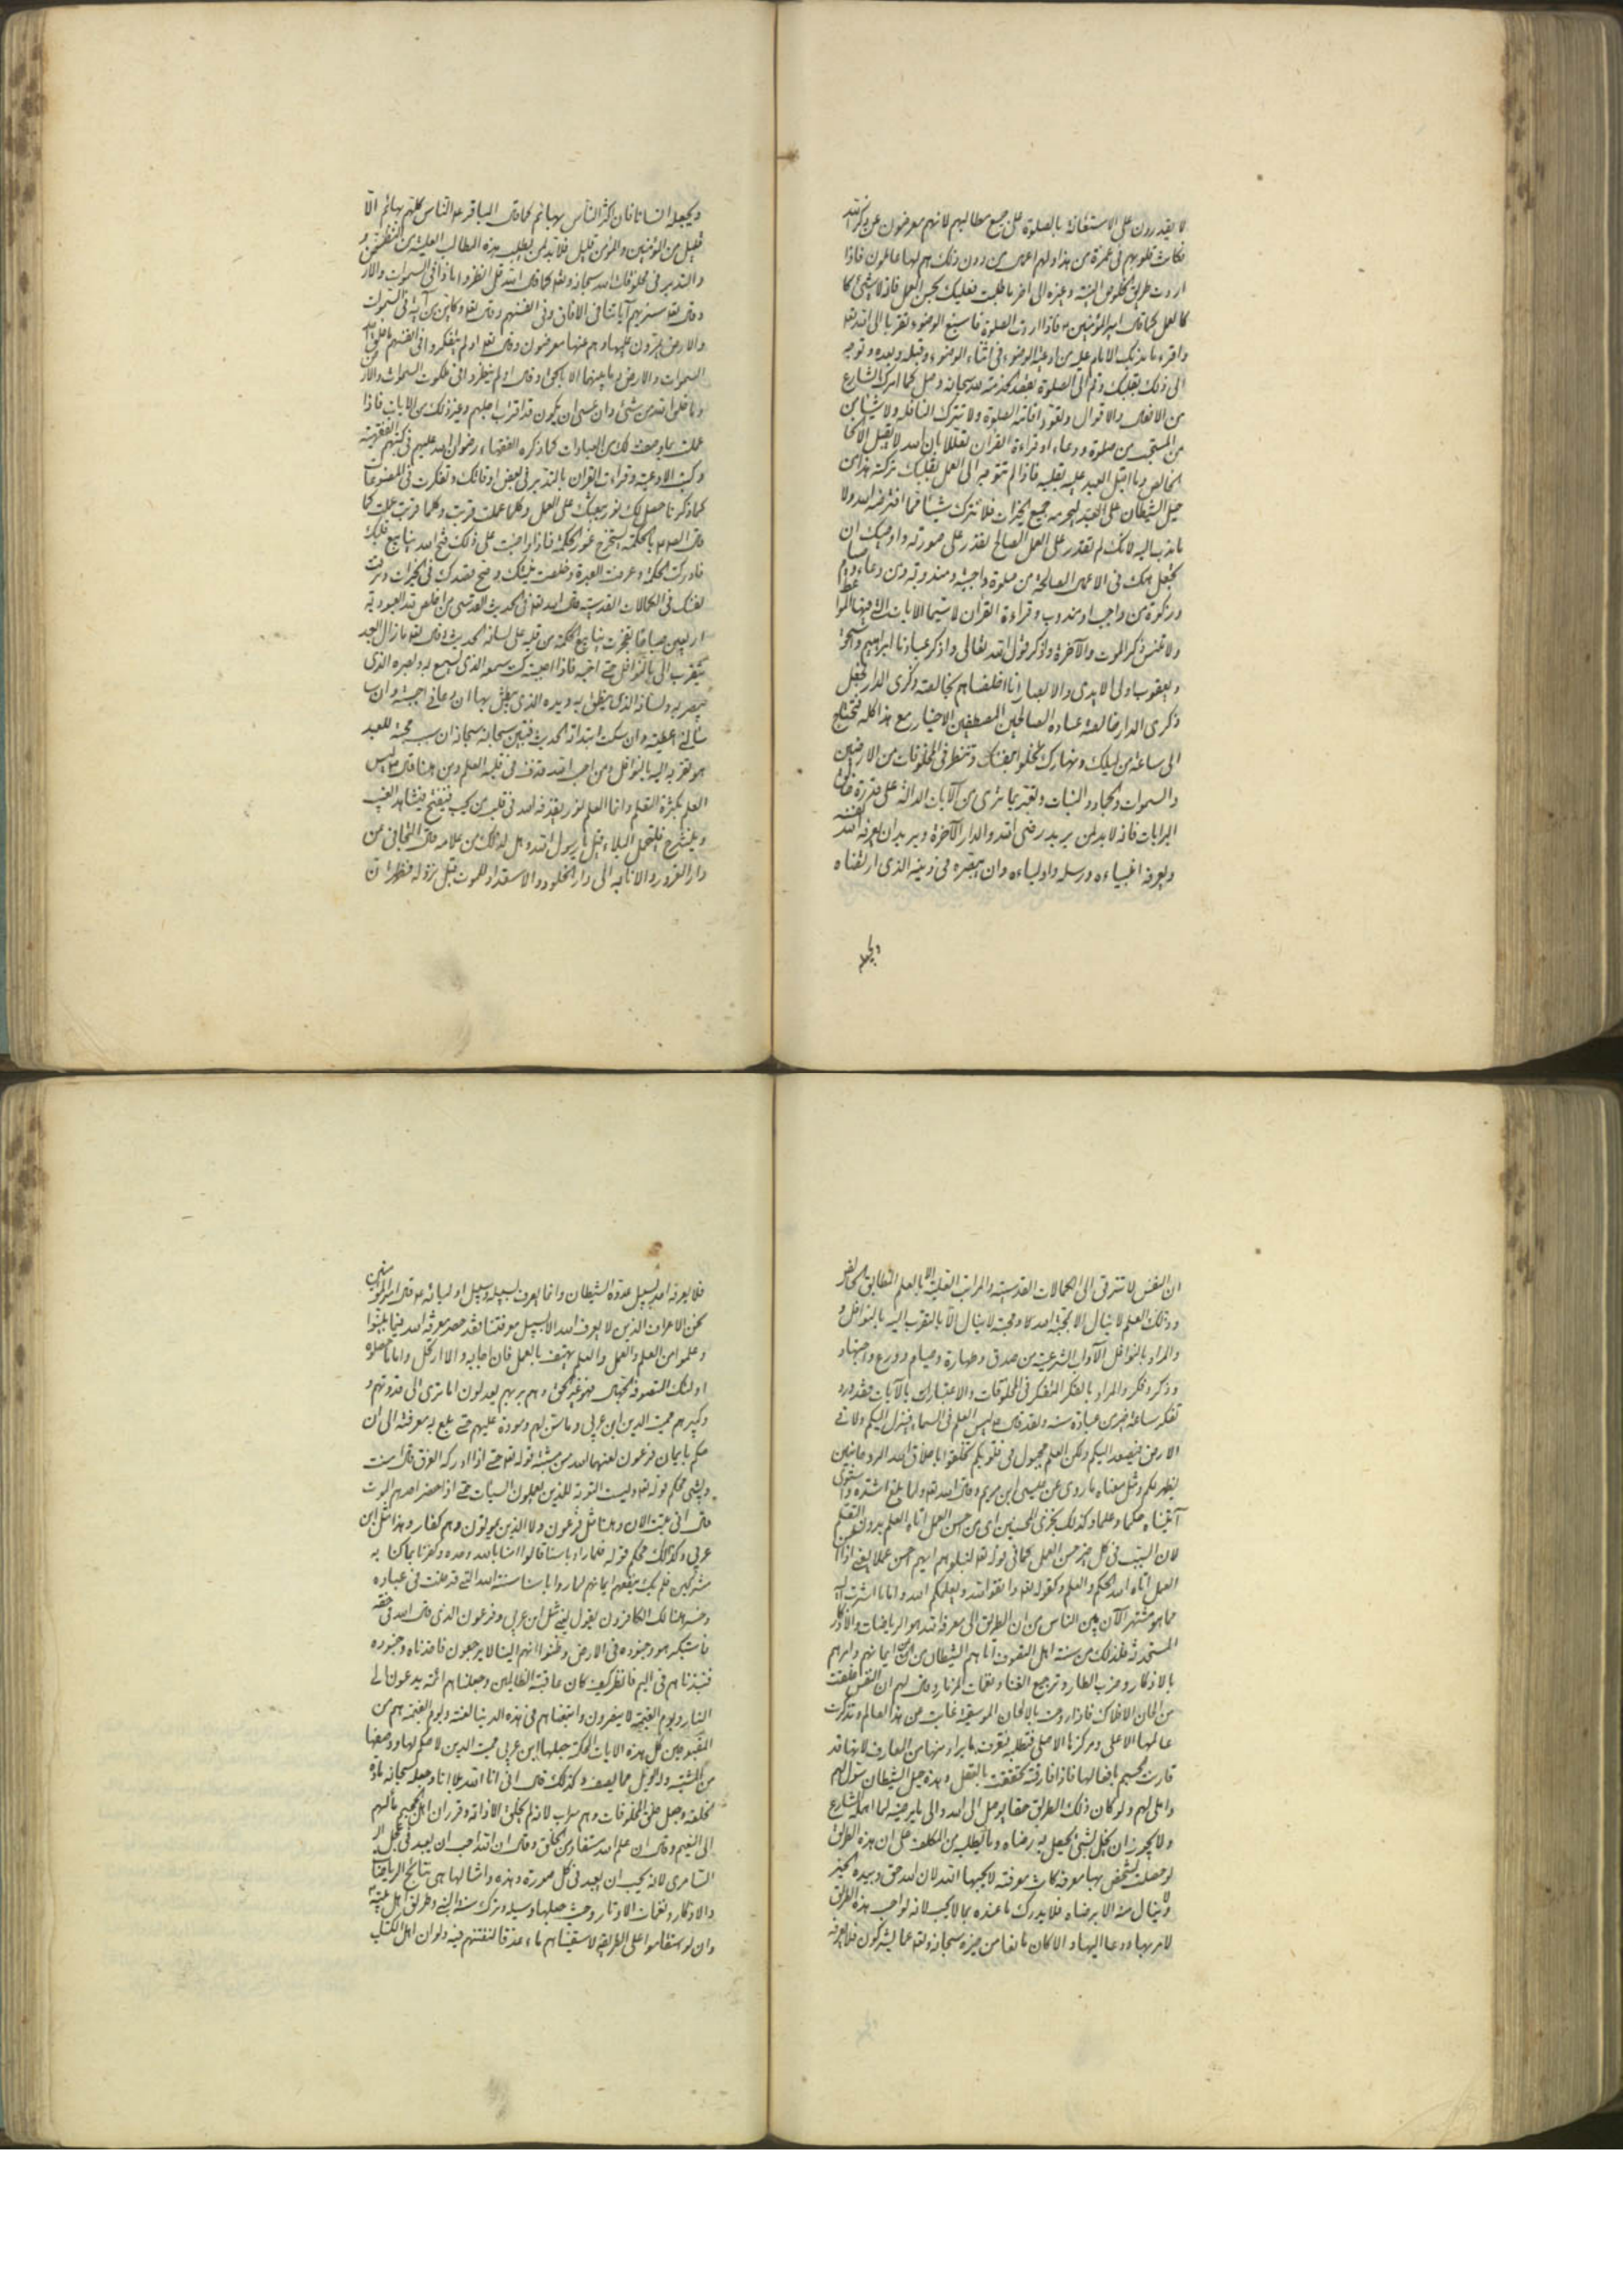 لا يقدرون على الاستعانة بالصلوة على جميع مطالبهم لانهم معرضون عن ذكر الله
فكانت قلوبهم في غمرة من هذا ولهم اعمال من دون ذلك هم لها عاملون فاذا
اردت طريق الخلوص النية وغيره الى اخر ما طلبت فعليك بحسن العمل فانه لا شيئ كا
كالعمل كما قال امير المؤمنين ع فاذا اردت الصلوة فاسبغ الوضوء تقربا الى الله تعالى
واقرء ما ندبك الامام عليه من ادعية الوضوء في اثناء الوضوء وقبله وبعده وتوجه
الى ذلك بقلبك وقم الى الصلوة بقصد الخدمة لله سبحانه وصل كما امرك الشارع
من الافعال والاقوال وتعود اقامة الصلوة ولا تترك النافلة ولا شيئا من
من المستحب من صلوة ودعاء او قراءة القران تعللا بان الله لا يقبل الا
الخالص وما اقبل العبد عليه بقلبه فاذا لم تتوجه الى العمل بقلبك تركته هذا من
حيل الشيطان على العبد ليحرمه جميع الخيرات فلا تترك شيئا مما افترضه الله ولا
ما ندب اليه لانك لم تقدر على العمل الصالح تقدر على صورته واوصيك ان
تجعل همك في الاعمال الصالحة من صلوة واجبة ومندوبة ومن دعاء وصيام
وزكوة من واجب او مندوب وقراءة القران لا سيما الايات التي فيها المواعظ
ولا تنس ذكر الموت والآخرة واذكر قول الله تعالى واذكر عبادنا ابراهيم واسحق
ويعقوب اولى الايدى والابصار انا اخلصناهم بخالصة ذكرى الدار فجعل
ذكرى الدار خالصة عباده الصالحين المصطفين الاخيار مع هذا كله فتحتاج
الى ساعة من ليلك ونهارك تخلوا بنفسك وتنظر في المخلوقات من الارضين
والسموات والجماد والنبات وتعتبر بما ترى من الآيات الدالة على قدرة خالق
البرايات فانه لابد لمن يريد رضى الله والدار الآخرة ويريد ان يعرفه الله نفسه
ويعرفه انبياءه ورسله واولياءه وان يبصره في دينه الذى ارتضاه
ويجعله
ويجعله انسانا فان اكثر الناس بهائم كما قال الباقر ع الناس كلهم بهائم الا
قليل من المؤمنين والمؤمن قليل فلابد لمن يطلب هذه المطالب العلية من النظر
والتدبر في مخلوقات الله سبحانه وتعالى كما قال الله قل انظروا ماذا في السموات والار
وقال تعالى سنريهم آياتنا في الافاق وفي انفسهم وقال تعالى وكاين من آية في السموات
والارض يمرون عليها وهم عنها معرضون وقال تعالى اولم يتفكروا في انفسهم ما خلق الله
السموات والارض وما بينهما الا بالحق وقال اولم ينظروا في ملكوت السموات والارض
وما خلق الله من شئ وان عسى ان يكون قد اقترب اجلهم وغير ذلك من الايات فاذا
عملت بما وصفت لك من العبادات كما ذكره الفقهاء رضوان الله عليهم في كتبهم الفقهية
وكتب الادعية وقراءت القران بالتدبر في بعض اوقاتك وتفكرت في المصنوعات
كما ذكرنا حصل لك نور يعينك على العمل وكلما عملت قربت وكلما قربت عملت كما
قال ع بالحكمة يستخرج غور الحكمة فاذا واظبت على ذلك فتح الله ينابيع قلبك
فادركت الحكمة وعرفت العبرة وخلصت نيتك وصح قصدك في الخيرات وترقت
نفسك في الكمالات القدسية قال الله تعالى في الحديث القدسى من اخلص لله العبودية
اربعين صباحا تفجرت ينابيع الحكمة من قلبه على لسانه الحديث وقال تعالى ما زال العبد
يتقرب الى بالنوافل حتى احبه فاذا احببته كنت سمعه الذى يسمع به وبصره الذى
يبصر به ولسانه الذى ينطق به ويده الذى يبطش بها ان دعانى اجبته وان سا
سألنى اعطيته وان سكت ابتدأته الحديث فبين سبحانه سبحانه ان سبب محبته للعبد
هو تقربه اليه بالنوافل ومن احبه الله قذف في قلبه العلم ومن هنا قال ع ليس
العلم بكثرة التعلم وانما العلم نور يقذفه الله في قلب من يحب فينفتح فيشاهد الغيب
وينشرح فيتحمل البلاء قيل يا رسول الله وهل لذلك من علامة قال التجافى عن
دار الغرور والانابة الى دار الخلود والاستعداد للموت قبل نزوله فظهر ان
ان النفس لا تترقى الى الكمالات القدسية والمراتب العلية الا بالعلم المطابق الخالص
وذلك العلم لا ينال الا بمحبة الله ومحبته لا ينال الا بالتقرب اليه بالنوافل و
والمراد بالنوافل الآداب الشرعية من صدق وطهارة وصيام وورع واجتهاد
وذكر وفكر والمراد بالفكر التفكر في المخلوقات والاعتبارات بالآيات فقد ورد
تفكر ساعة خير من عبادة سنة ولقد قال ع ليس العلم في السماء فينزل اليكم ولا في
الارض فيصعد اليكم ولكن العلم مجبول في قلوبكم تخلقوا باخلاق الله الروحانيين
يظهر لكم ومثل معناه ما روى عن عيسى ابن مريم وقال الله تعالى ولما بلغ اشده واستوى
آتيناه حكما وعلما وكذلك نجزى المحسنين اى من احسن العمل اتاه العلم بدون التعلم
لان السبب في كل خير حسن العمل كما في قوله تعالى ليبلوهم ايهم احسن عملا يعنى اذا احسن
العمل اتاه الله الحكم والعلم وكقوله تعالى واتقوا الله ويعلمكم الله واما ما اشرت اليه
مما هو مشتهر الآن بين الناس من ان الطريق الى معرفة الله هو الرياضات والاذكار
المستحدثة فذلك من سنة اهل التصوف اتاهم الشيطان من ايمانهم وامرهم
بالاذكار وضرب الطار وترجيع الغناء ونغمات المزمار وقال لهم ان النفس خلقت
من الحان الافلاك فاذا روحت بالالحان الموسيقية غابت عن هذا العالم وتذكرت
عالمها الاعلى ومركزها الاصلى فتطلبه فتعرف ما يراد منها من المعارف لانها قد
قارنت الجسم بافعالها فاذا فارقته تحققت بالعقل وهذه حيل الشيطان سول لهم
واملى لهم ولو كان ذلك الطريق حقا يوصل الى الله والى ما يرضيه لما اهمله الشارع
ولا يجوز ان يخل بشئ يحصل به رضاه وما يطلبه من المكلف على ان هذه الطريق
لو حصلت لشخص بها معرفة كانت معرفة لا يحبها الله لان الله حق وبيده الخير
ولا ينال منه الا برضاه فلا يدرك ما عنده بما لا يحب لانه لو احب هذه الطريق
لامر بها ودعا اليها والا كان مانعا من خيره سبحانه وتعالى عما يشركون فلا يعرفه
فلا يعرفه الله بسبيل عدوه الشيطان وانما يعرف بسبيله وسبيل اوليائه ع قال امير المؤمنين
نحن الاعراف الذين لا يعرف الله الا بسبيل معرفتنا فقد حصر معرفة الله فيما بينوا
وعلموا من العلم والعمل والعلم يهتف بالعمل فان اجابه والا ارتحل واما ما عملوه
اولئك المتصوفة الجهال فهو غير الحق وهم بربهم يعدلون اما ترى الى قدوتهم و
وكبيرهم مميت الدين ابن عربى وما سن لهم وسوده عليهم حتى بلغ به معرفته الى ان
حكم بايمان فرعون لعنهما الله من شبه قوله تعالى حتى اذا ادركه الغرق قال امنت
ونسى محكم قوله تعالى وليست التوبة للذين يعملون السيات حتى اذا حضر احدهم الموت
قال انى تبت الان وهنا مثل فرعون ولا الذين يموتون وهم كفار وهذا مثل ابن
عربى وكذلك محكم قوله فلما راوا باسنا قالوا امنا بالله وحده وكفرنا بما كنا به
مشركين فلم يك ينفعهم ايمانهم لما راوا باسنا سنة الله التى قد خلت في عباده
وخسر هنالك الكافرون يقول يعنى مثل ابن عربى وفرعون الذى قال الله في حقه
فاستكبر هو وجنوده في الارض وظنوا انهم الينا لا يرجعون فاخذناه وجنوده
فنبذناهم في اليم فانظر كيف كان عاقبة الظالمين وجعلناهم ائمة يدعون الى
النار ويوم القيمة لا ينصرون واتبعناهم في هذه الدنيا لعنة ويوم القيمة هم من
المقبوحين كل هذه الايات المحكمة جعلها ابن عربى مميت الدين لا حكم لها ووضعها
من المتشبه وكذلك قال انى انا الله بلا انا وجعله سبحانه مادة
لخلقه وجعل خلق المخلوقات وهم سراب لانه لم يخلق الا ذاته وقرر ان اهل الجحيم مآلهم
الى النعيم وقال ان علم الله مستفاد من الخلق وقال ان الله احب ان يعبد في عجل
السامرى لانه يحب ان يعبد في كل صورة وهذه وامثالها هى نتايج الرياضات
والاذكار ونغمات الاوتار وحيث جعلها وسيلة وترك سنة النبى وطريق اهل بيته
وان لو استقاموا على الطريقة لاسقيناهم ماء غدقا لنفتنهم فيه ولو ان اهل الكتاب